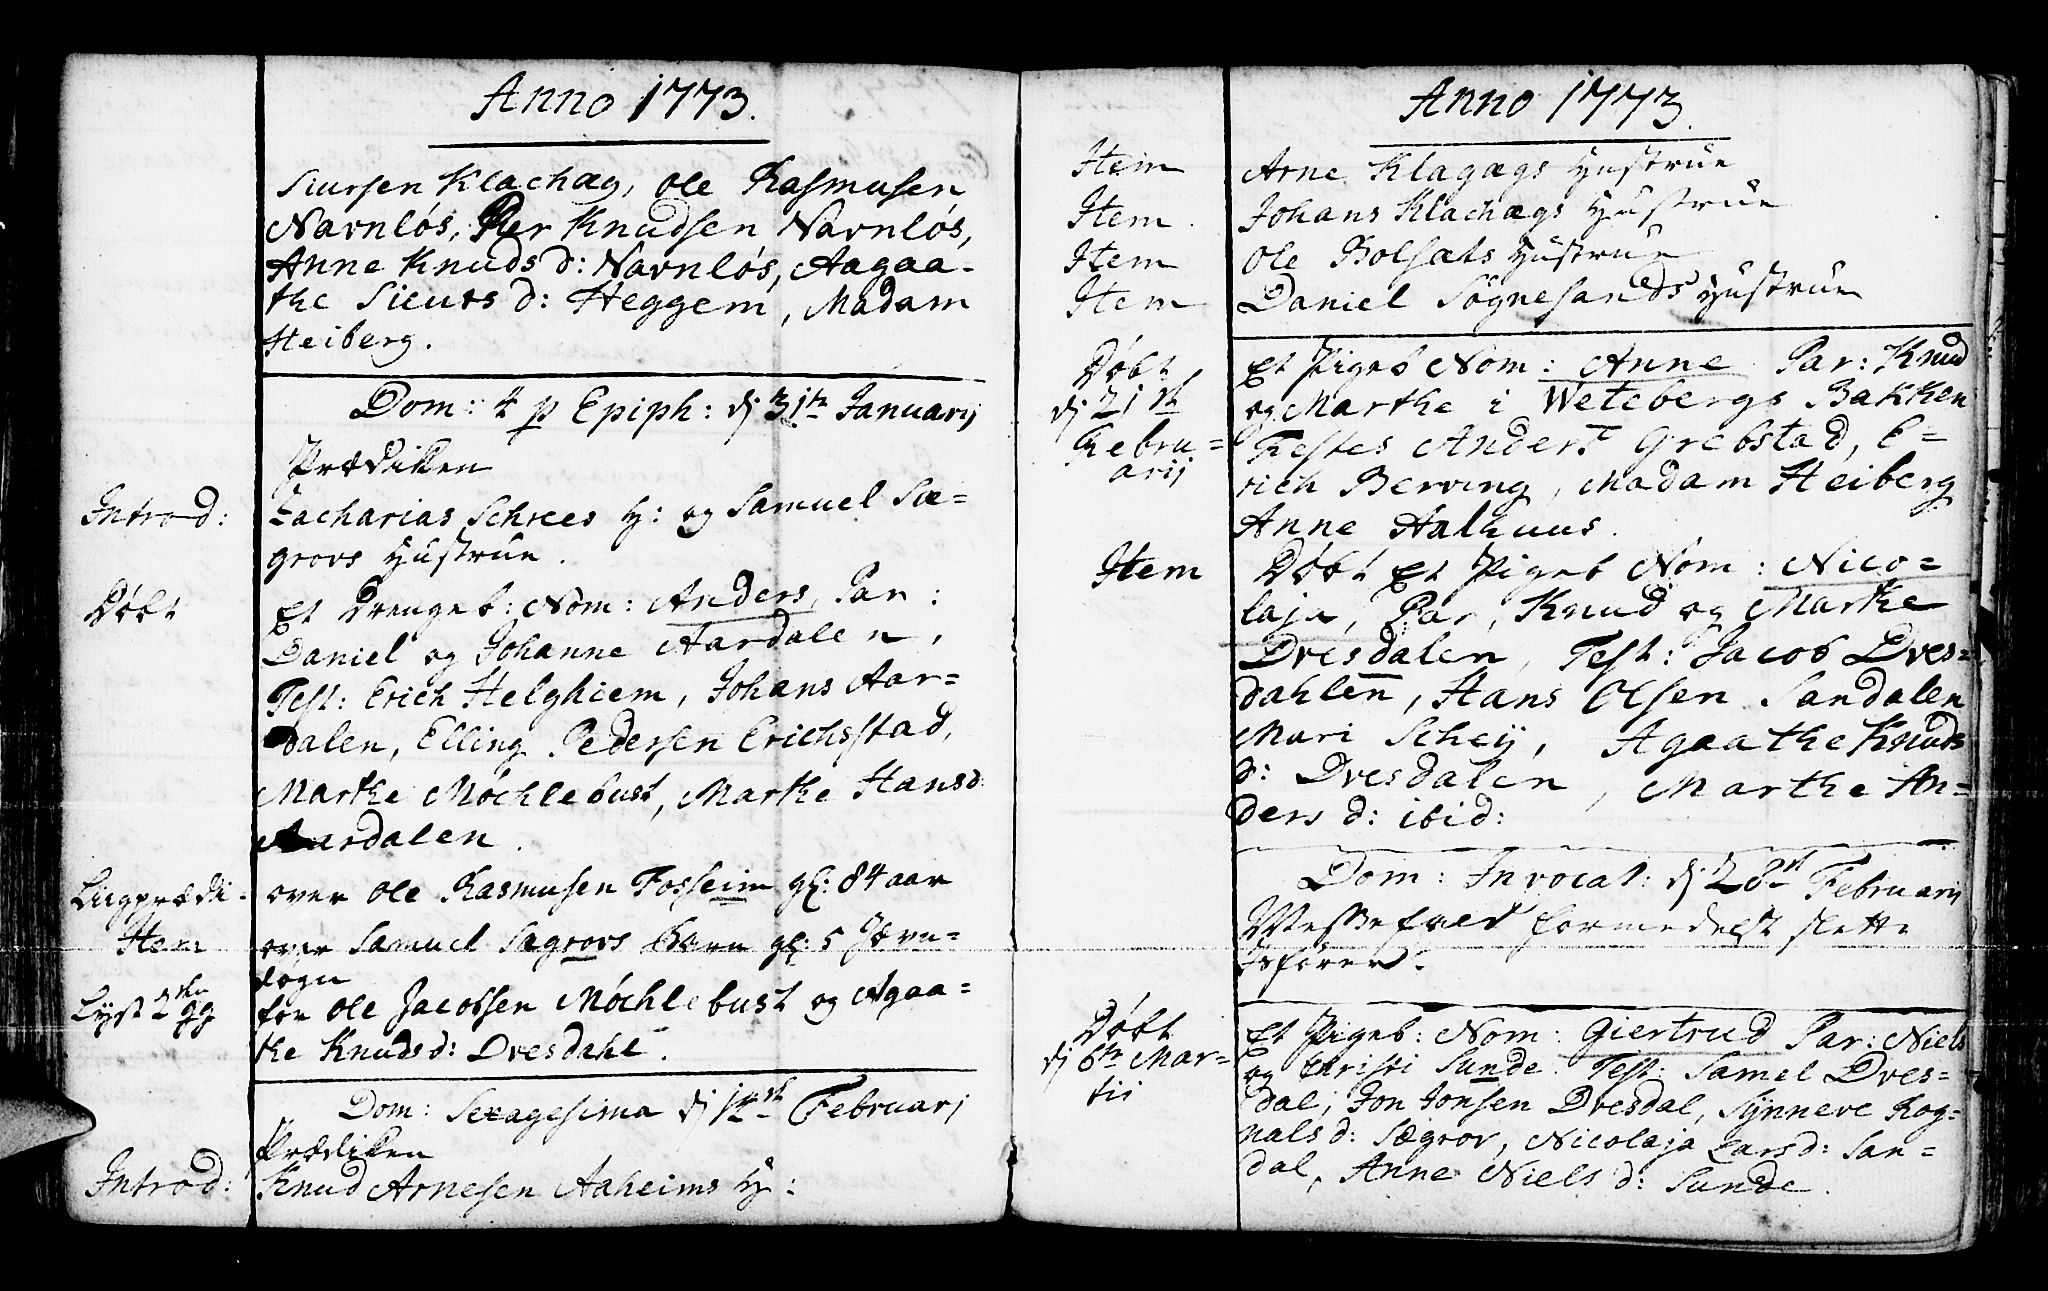 Anno 1773.
Siursen Klachæg, Ole Rasmusen
Navnløs, Per Knudsen Navnløs,
Anne Knuds d: Navnløs, Aagaa-
the Siurs d: Heggem, Madam
Heiberg.
Dom: 4 p Epiph: dj 31te Januarij
Prædiken
Introd: Zacharias Schrees H: og Samuel Sæ-
grovs Hustrue.
Døbt Et Drengeb: Nom: Anders, Par:
Daniel og Johanne Aardalen,
Test: Erich Helghiem, Johans Aar-
dalen, Elling Pedersen Erichsstad,
Marthe Møchlebust, Marthe Hansd:
Aardalen.
Liigprædi- over Ole Rasmusen Fosseim gl: 84 aar
Item over Samuel Sægrovs Barn gl: 5 Jevn-
døgn
Lyst 2den gg for Ole Jacobsen Møchlebust og Agaa-
the Knudsd: Dvesdahl.
Dom: Sexagesima dj 14de Februarj
Prædiken
Introd: Knud Arnesen Aaheims H:
Anno 1773.
Item Arne Klagægs Hustrue
Item Johans Klachægs Hustrue
Item Ole Bolsæts Hustrue
Item Daniel Søgnesands Hustrue
Døbt Et Pigeb Nom: Anne Par: Knud
dj 21de og Marthe i Wetebergs Bakken
Febru- Testes Anders Grebstad, E-
arij rich Berving, Madam Heiberg
Anne Aalhuus.
Item Døbt Et Pigeb Nom: Nico-
laja, Par, Knud og Marthe
Dvesdalen, Test: Jacob Dves-
dahlen, Hans Olsen Sandalen
Mari Scheij, Agaathe Knuds
d: Dvesdalen, Marthe An-
ders d: ibid:
Dom: Invocat: dj 28de Februarij
Messefald formedelst slette
Isfører.
Døbt Et Pigeb: Nom: Giertrud Par: Niels
dj 6te Mar- og Christi Sunde. Test: Samel Dves-
tii dal, Jon Jonsen Dvesdal, Synneve Rog-
nals d: Sægrov, Nicolaja Lars d: San-
dal, Anne Niels d: Sunde.